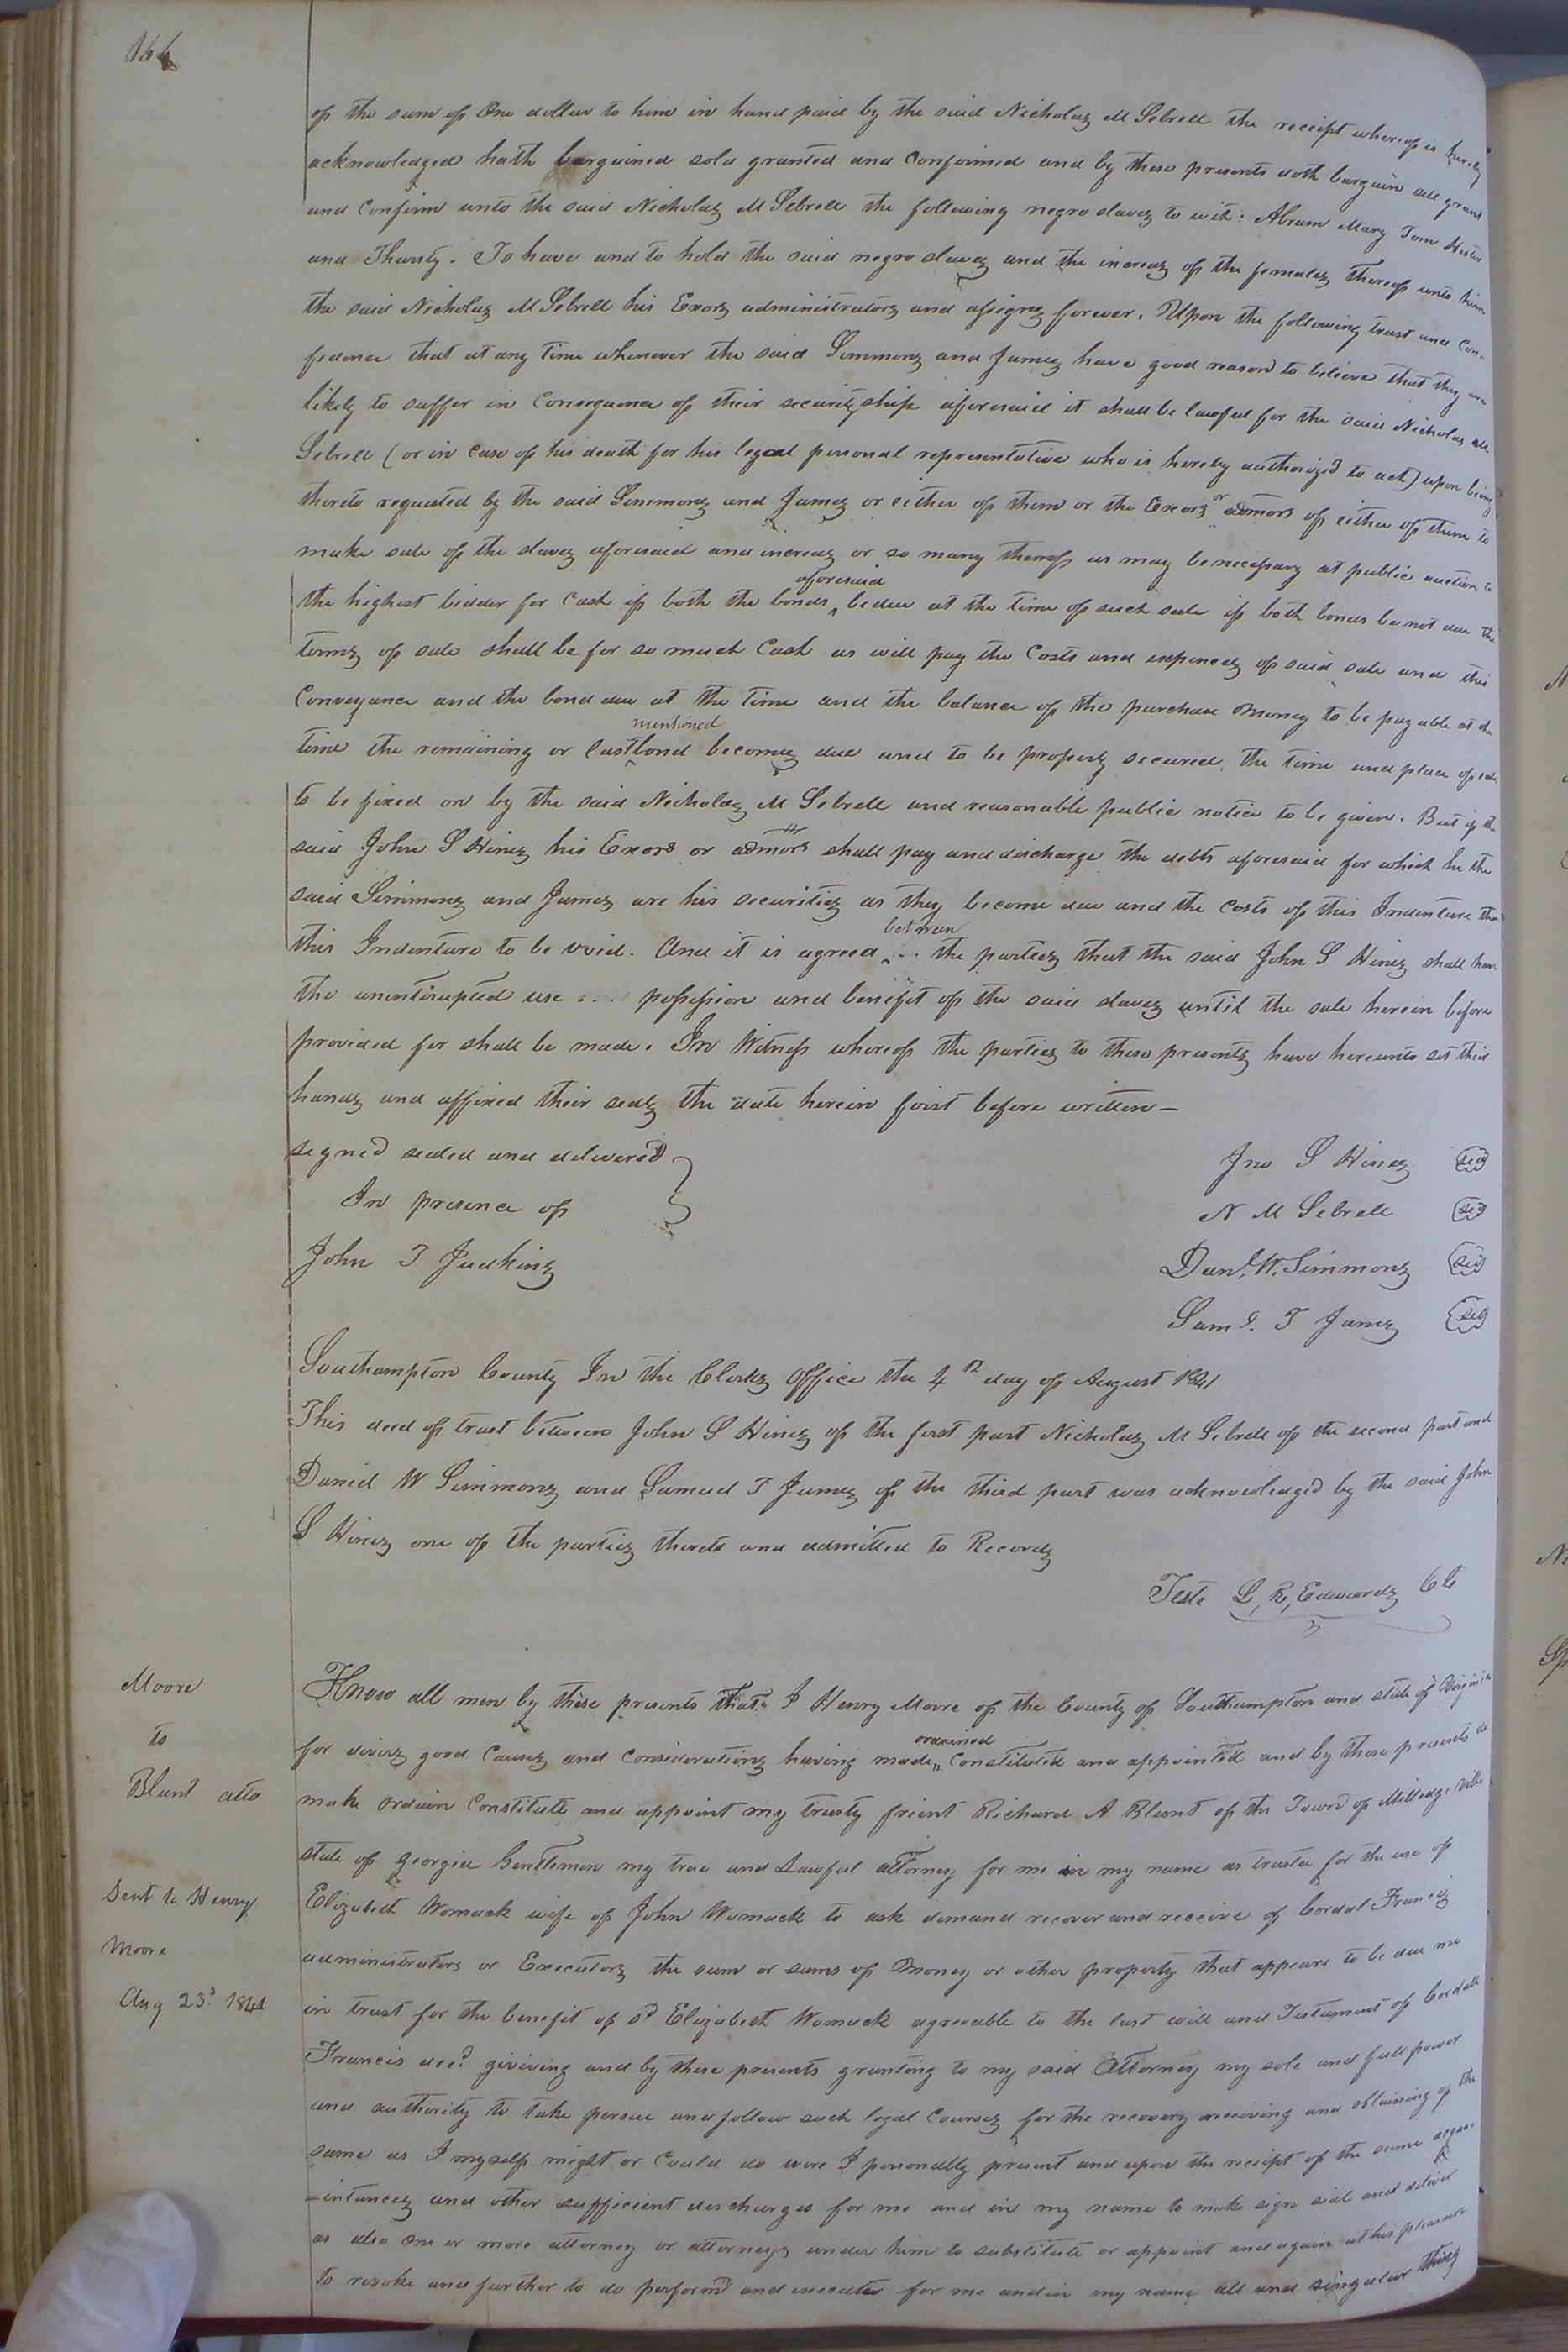 166
of the sum of One dollar to him in hand paid by the said Nicholas M Sebrell the receipt whereof is hereby
acknowledged hath bargained sold granted and confirmed and by these presents doth bargain sell grant
and Confirm unto the said Nicholas M Sebrell the following negro slaves to wit: Abram Mary Tom Hester
and Thursty. To have and to hold the said negro slaves and the increas of the females thereof unto him
the said Nicholas M Sebrell his Exors administrators and assigns forever. Upon the following trust and Con-
fidence that at any time whenever the said Simmons and James have good reason to believe that they are
likely to suffer in Consequence of their securityship aforesaid it shall be lawful for the said Nicholas M
Sebrell (or in case of his death for his legal personal representative who is hereby authorized to act) upon being
thereto requested by the said Simmons and James or either of them or the Exors or admors of either of them to
make sale of the slaves aforesaid and increas or so many thereof as may be necessary at public auction to
the highest bidder for Cash if both the bonds aforesaid be due at the time of such sale if both bonds be not due the
terms of sale shall be for so much Cash as will pay the Costs and expences of said sale and this
Conveyance and the bond due at the time and the balance of the purchase money to be payable at the
time the remaining or last mentioned bond becomes due and to be properly secured, the time and place of sale
to be fixed on by the said Nicholas M Sebrell and reasonable public notice to be given. But if the
said John S Hines his Exors or admors shall pay and discharge the debts aforesaid for which he the
said Simmons and James are his securities as they become due and the costs of this Indenture then
this Indenture to be void. And it is agreed between the parties that the said John S Hines shall have
the uninterupted use possession and benefit of the said slaves until the sale herein before
provided for shall be made. In Witness whereof the parties to these presents have hereunto set their
hands and affixed their seals the date herein first before written—
signed sealed and delivered
In presence of
John T Judkins
Jno S Hines
N M Sebrell
Danl. W. Simmons
Saml. T James
Southampton County In the Clerks Office the 4th day of August 1841
This deed of trust between John S Hines of the first part Nicholas M Sebrell of the second part and
Daniel W Simmons and Samuel T James of the third part was acknowledged by the said John
S Hines one of the parties thereto and admitted to Records
Teste L, R, Edwards CC
Moore
to
Blunt atto
Sent to Henry
Moore
Aug 23d 1841
Know all men by these presents that I Henry Moore of the County of Southampton and state of Virginia
for divers good Causes and Considerations having made, ordained Constituted and appointed and by these presents do
make ordain Constitute and appoint my trusty frient Richard A Blunt of the Town of Milledgeville
state of georgia Gentleman my true and Lawful attorney for me in my name as trustee for the use of
Elizabeth Womack wife of John Womack to ask demand recover and receive of Cordal Francis
administrators or Executors the sum or sums of Money or other property that appears to be due me
in trust for the benefit of sd Elizabeth Womack agreeable to the last will and Testament of Cordall
Francis decd. giviving and by these presents granting to my said Attorney my sole and full power
and authority to take persue and follow such legal Courses for the recovery receiving and obtaining of the
same as I myself might or Could do were I personally present and upon the receipt of the same acqua
=intances and other sufficient discharges for me and in my name to make sign seal and deliver
as also one or more attorney or attorneys under him to substitute or appoint and again at his pleasure
to revoke and further to do perform and execute for me and in my name all and singular things